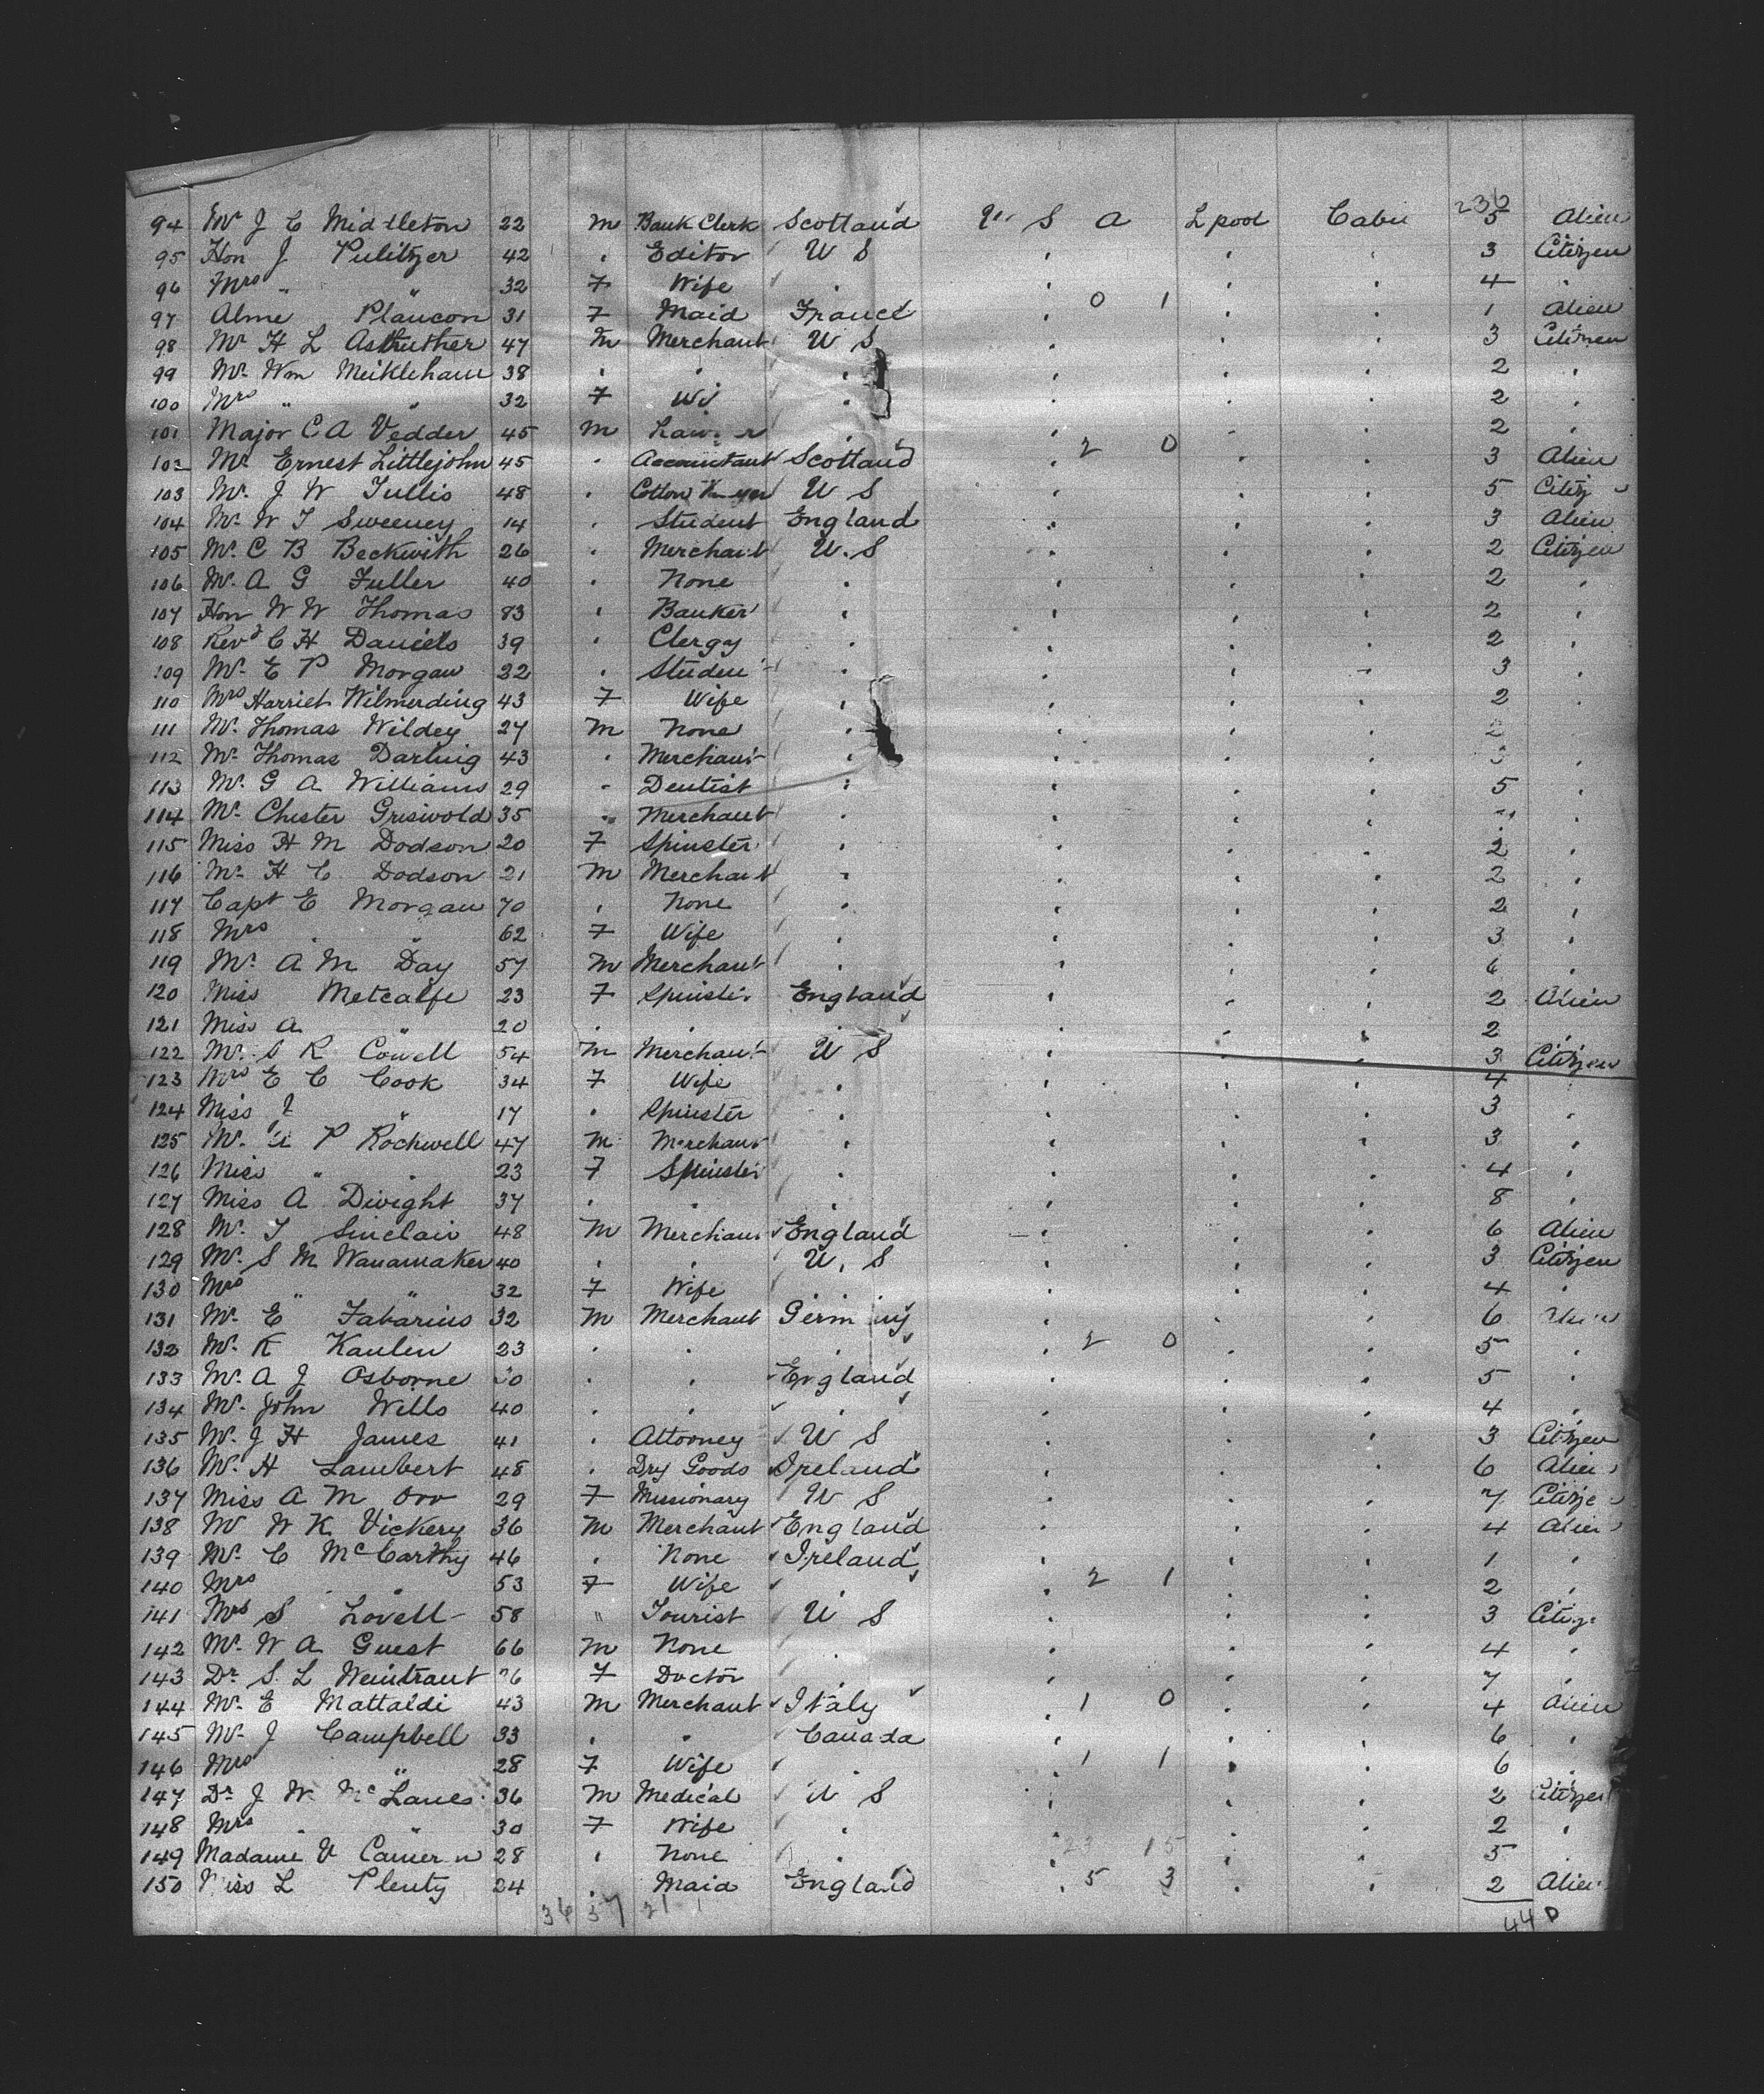 236
94 Mr J C Middleton 22 M Bank Clerk Scotland U S A Lpool Cabin 5 Alien
95 Hon J Pulitzer 42 " Editor U S " " " 3 Citizen
96 Mrs " " 32 F Wife " " " " 4 "
97 Alme Plancon 31 F Maid France " 0 1 " " 1 Alien
98 Mr H L Astruther 47 M Merchant U S " " " 3 Citizen
99 Mr Wm Meikleham 38 " " " " " " 2 "
100 Mrs " " 32 F Wi " " " " 2 "
101 Major C A Vedder 45 M " " " " 2 "
102 Mr Ernest Littlejohn 45 " Accountant Scotland " 2 0 " " 3 Alien
103 Mr J W Tullis 48 " Cotton U S " " " 5 Citiz
104 Mr W T Sweeney 14 " Student England " " " 3 Alien
105 Mr C B Beckwith 26 " Merchant U.S " " " 2 Citizen
106 Mr A G Fuller 40 " None " " " " 2 "
107 Hon W W Thomas 83 " Banker " " " " 2 "
108 Revd C H Daniels 39 " Clergy " " " " 2 "
109 Mr E P Morgan 22 " Studen " " " " 3 "
110 Mrs Harriet Wilmerding 43 F Wife " " " " 2 "
111 Mr Thomas Wildey 27 M None " " " " 2 "
112 Mr Thomas Darling 43 " Merchant " " " " "
113 Mr G A Williams 29 " Dentist " " " " 5 "
114 Mr Chester Griswold 35 " Merchant " " " " "
115 Miss H M Dodson 20 F Spinster " " " " 2 "
116 Mr H C Dodson 21 M Merchant " " " " 2 "
117 Capt E Morgan 70 " None " " " " 2 "
118 Mrs " " 62 F Wife " " " " 3 "
119 Mr A M Day 57 M Merchant " " " " 6 "
120 Miss Metcalfe 23 F Spinster England " " " 2 Alien
121 Miss A " 20 " " " " " " 2 "
122 Mr S R Cowell 54 M Merchant U S " " " 3 Citizen
123 Mrs E C Cook 34 F Wife " " " " 4 "
124 Miss " 17 " Spinster " " " " 3 "
125 Mr P Rockwell 47 M Merchant " " " " 3 "
126 Miss " " 23 F Spinster " " " " 4 "
127 Miss A Dwight 37 " " " " " " 8 "
128 Mr T Sinclair 48 M Merchant England " " " 6 Alien
129 Mr S M Wanamaker 40 " " U.S " " " 3 Citizen
130 Mrs " " 32 F Wife " " " " 4 "
131 Mr E Fabarius 32 M Merchant Germany " " " 6
132 Mr K Kaulen 23 " " " " 2 0 " " 5 "
133 Mr A J Osborne 0 " " England " " " 5 "
134 Mr John Wells 40 " " " " " " 4 "
135 Mr J H James 41 " Attorney U S " " " 3 Citizen
136 Mr H Lambert 48 " Dry Goods Ireland " " " 6 Alien
137 Miss A M Orr 29 F Missionary U S " " " 7 Citize
138 Mr W K Vickery 36 M Merchant England " " " 4 Alien
139 Mr C McCarthy 46 " None Ireland " " " 1 "
140 Mrs " " 53 F Wife " " 2 1 " " 2 "
141 Mrs S Lovell 58 " Tourist U S " " " 3 Citiz
142 Mr W A Guest 66 M None " " " " 4 "
143 Dr S. L Weintraut 6 F Doctor " " " " 7 "
144 Mr E Mattaldi 43 M Merchant Italy " 1 0 " " 4 Alien
145 Mr J Campbell 33 " " Canada " " " 6 "
146 Mrs " 28 F Wife " " 1 1 " " 6 "
147 Dr J W McLanes 36 M Medical U S " " " 2 Citizen
148 Mrs " " 30 F Wife " " " " 2 "
149 Madame V Camer n 28 " None " " 23 15 " " 5 "
150 Miss L Plenty 24 " Maid England " 5 3 " " 2 Alien
36 37 21
44 D